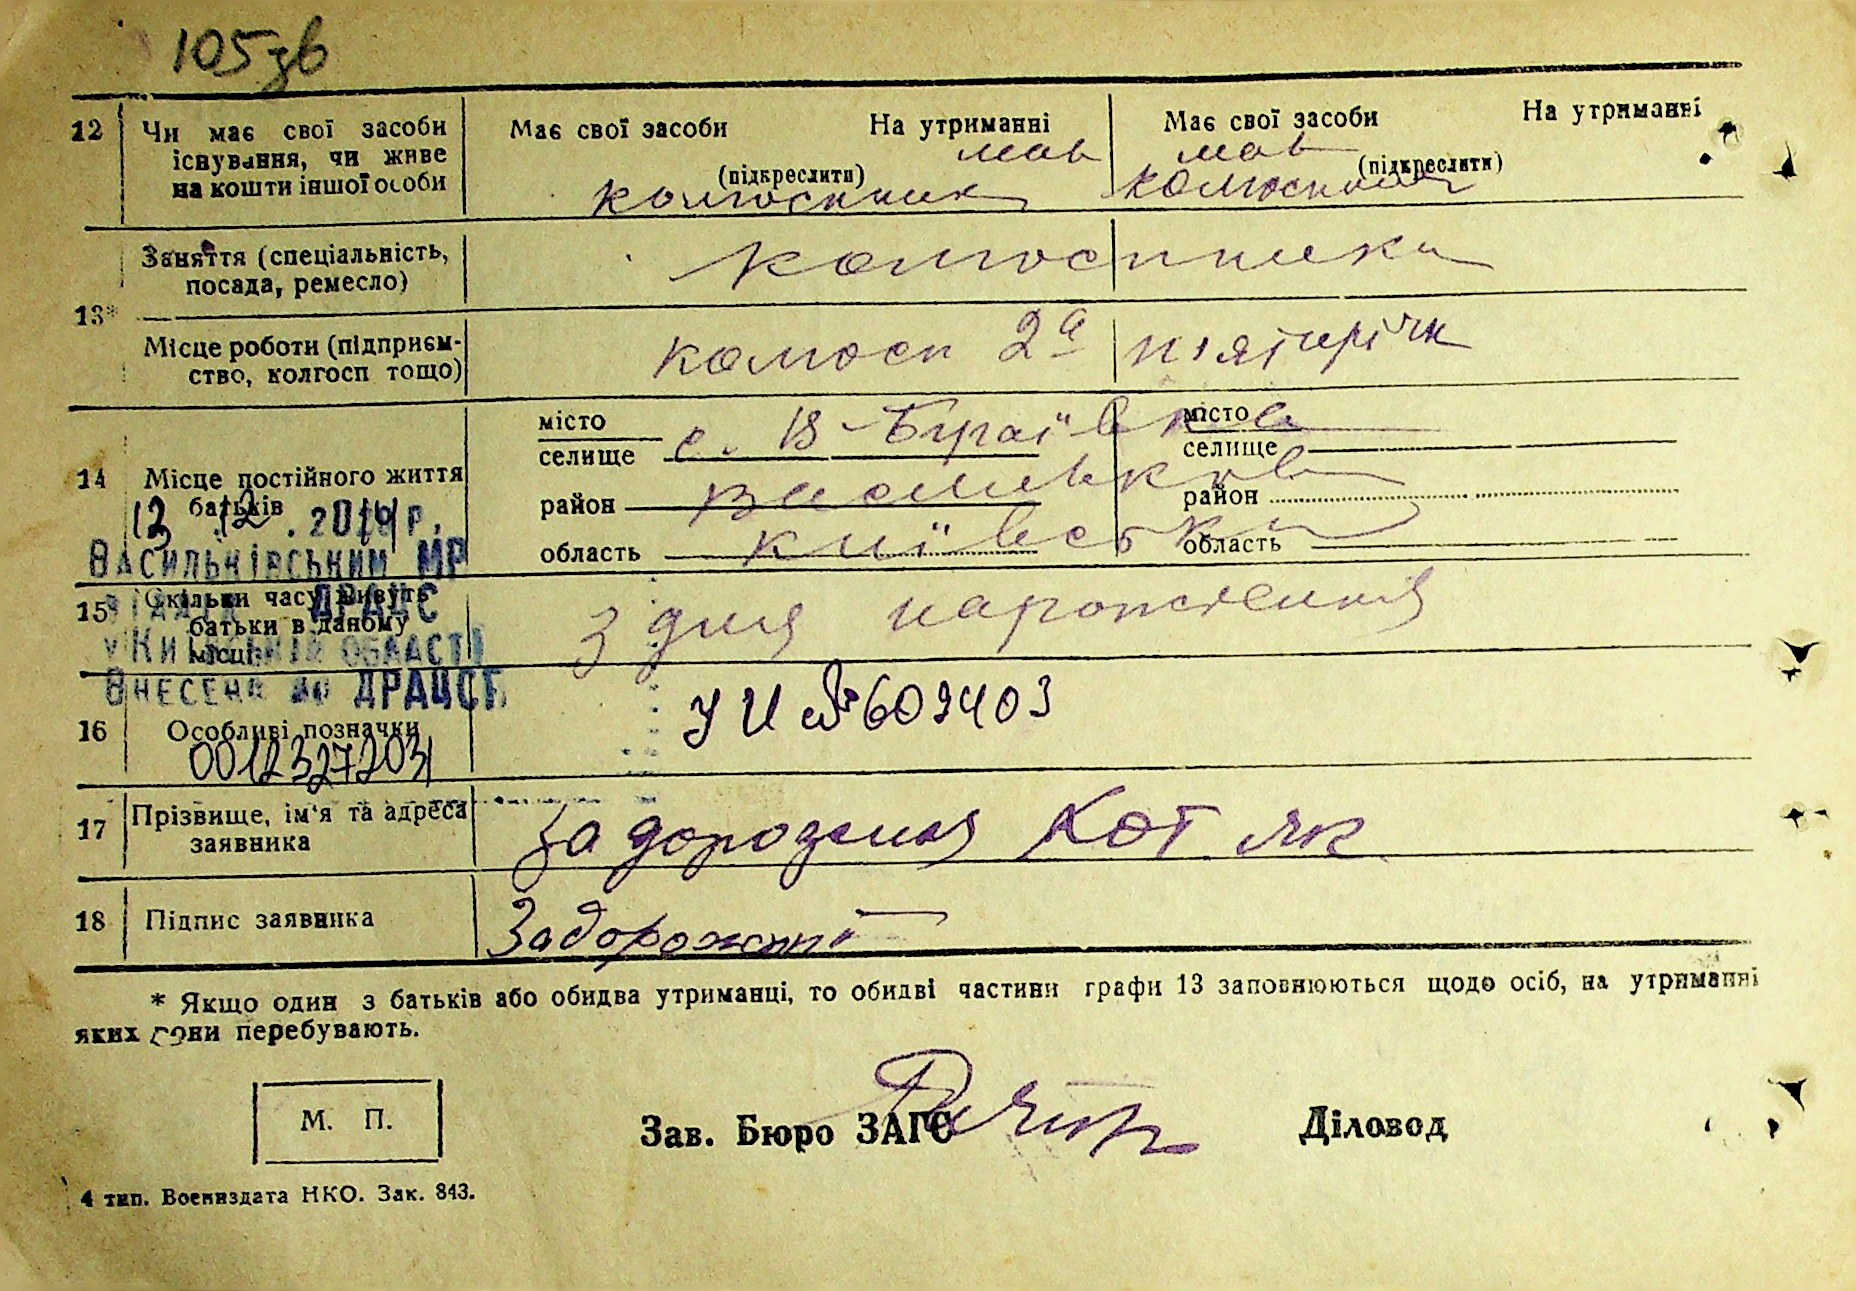 105 зв
12 Чи має свої засоби існування, чи живе на кошти іншої особи
Має свої засоби На утриманні (підкреслити)
колгоспник
Має свої засоби На утриманні (підкреслити)
13* Заняття (спеціальність, посада, ремесло)
колгоспники
Місце роботи (підприємство, колгосп тощо)
колгосп 2а п'ятирічк
14 Місце постійного життя батьків
місто
селище с. В-Бугаївка
район Васильків
область Київська
місто
селище
район
область
13 .12 .2014 р.
Васильківським МР
ДРАЦС
у Київській області
Внесено до ДРАЦСГ
0012327203
15 Скільки часу живуть батьки в даному місці
з дня народження
16 Особливі позначки
УИ № 609403
17 Прізвище, ім'я та адреса заявника
Задорожня
18 Підпис заявника
Задорожні
* Якщо один з батьків або обидва утриманці, то обидві частини графи 13 заповнюються щодо осіб, на утриманні
яких вони перебувають.
М. П.
Зав. Бюро ЗАГС
Діловод
4 тип. Воениздата НКО. Зак. 843.